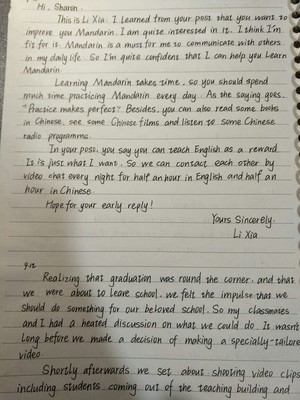 Hi, Sharon,
This is Li Xia. I learned from your post that you want to
improve you Mandarin. I am quite interested in it. I think I'm
fit for it. Mandarin is a must for me to communicate with others
in my daily life. So I'm quite confident that I can help you learn
Mandarin.
Learning Mandarin takes time, so you should spend
much time practicing Mandarin every day. As the saying goes,
"Practice makes perfect". Besides, you can also read some books
in Chinese, see some Chinese films and listen to some Chinese
radio programms.
In your post, you say you can teach English as a reward.
It is just what I want. So we can contact each other by
video chat every night for half an hour in English and half an
hour in Chinese.
Hope for your early reply!
Yours Sincerely,
Li Xia
9.12
Realizing that graduation was round the corner, and that
we were about to leave school, we felt the impulse that we
should do something for our beloved school. So my classmates
and I had a heated discussion on what we could do. It wasn't
long before we made a decision of making a specially-tailore
video.
Shortly afterwards we set about shooting video clips
including students coming out of the teaching building and